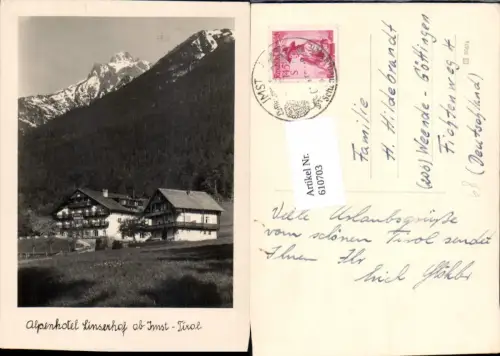 Alpenhotel Linserhof ob Imst - Tirol
IMST
Artikel Nr.
610703
Familie
H. Hildebrandt
Weende - Göttingen
Fichtenweg 4
(Deutschland)
Viele Urlaubsgrüße
vom schönen Tirol sendet
Ihnen Ihr
Erich